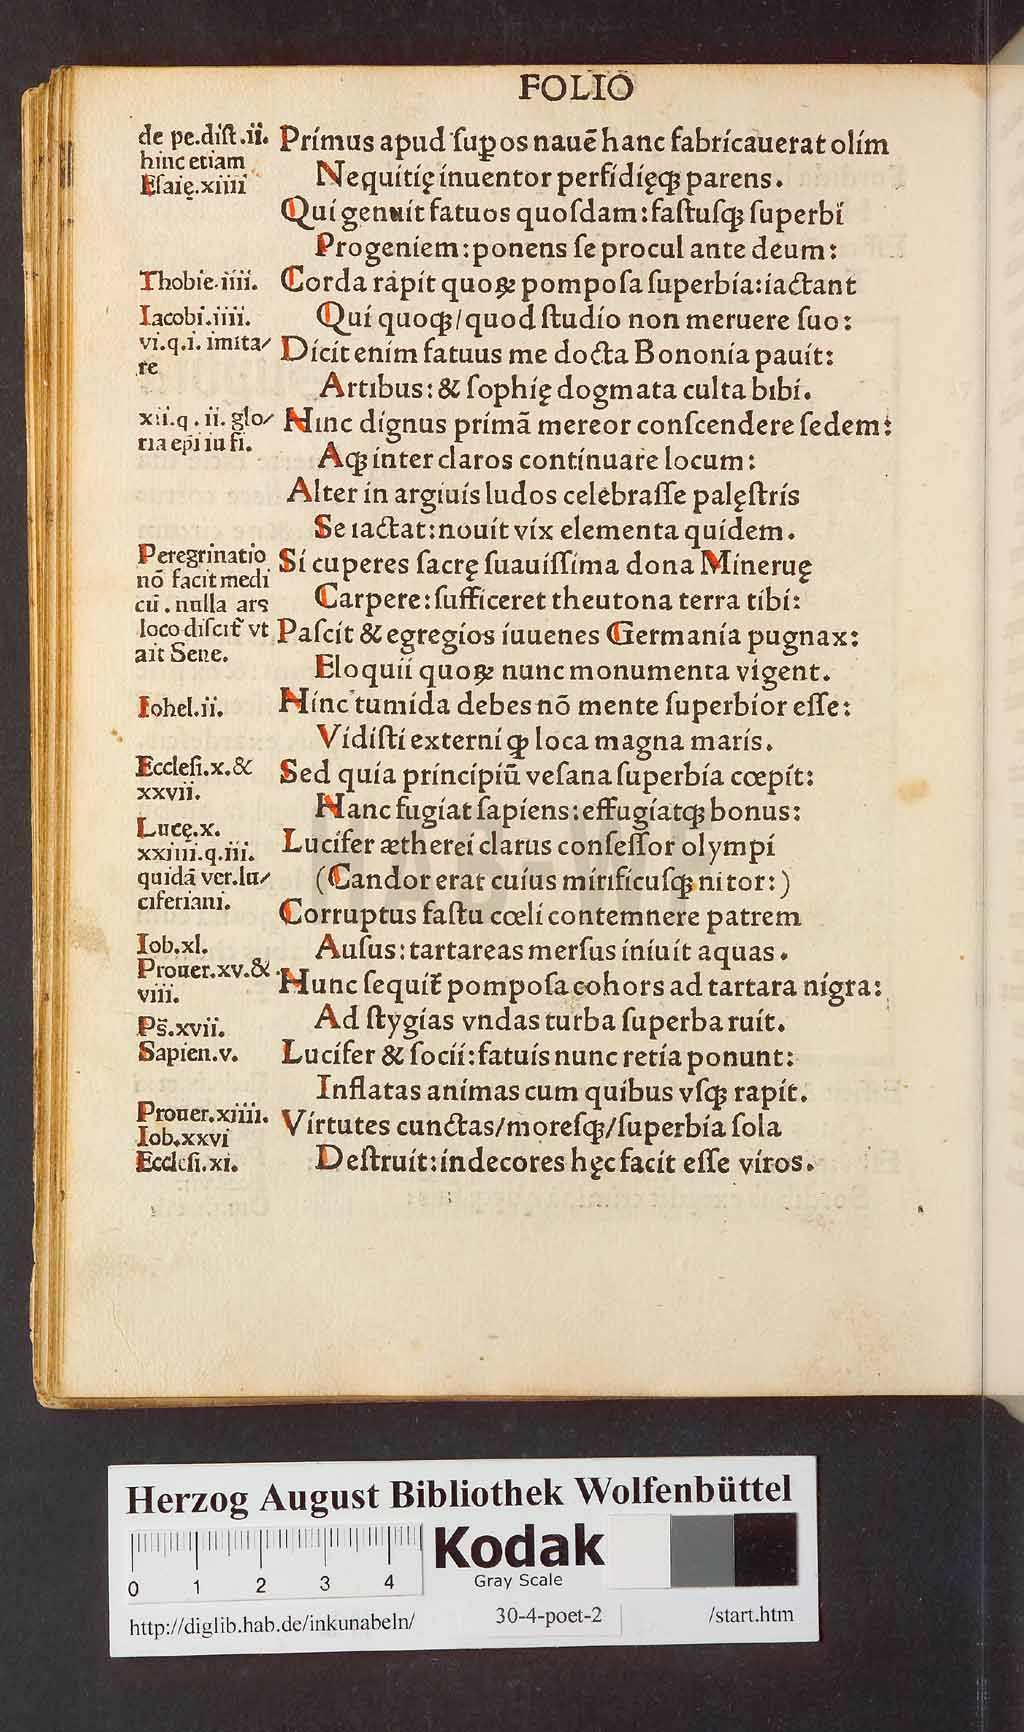 FOLIO
de pe.diſt.ii.
hinc etiam
Eſaię.xiiii
Primus apud ſuꝑos nauē hanc fabricauerat olim
Nequitię inuentor perfidięqꝫ parens.
Qui genuit fatuos quoſdam: faſtuſqꝫ ſuperbi
Progeniem: ponens ſe procul ante deum:
Thobie.iiii.
Corda rapit quoꝝ pompoſa ſuperbia: iactant
Iacobi.iiii.
Qui quoqꝫ/quod ſtudio non meruere ſuo:
vi.q.i. imita/
re
Dicit enim fatuus me docta Bononia pauit:
Artibus: & ſophię dogmata culta bibi.
xii.q.ii. glo/
ria ep̄i iu fi.
Hinc dignus primā mereor conſcendere ſedem:
Aqꝫ inter claros continuare locum:
Alter in argiuis ludos celebraſſe palęſtris
Se iactat: nouit vix elementa quidem.
Peregrinatio
nō facit medi
cū. nulla ars
loco diſcit̄ vt
ait Sene.
Si cuperes ſacrę ſuauiſſima dona Mineruę
Carpere: ſufficeret theutona terra tibi:
Paſcit & egregios iuuenes Germania pugnax:
Eloquii quoꝝ nunc monumenta vigent.
Iohel.ii.
Hinc tumida debes nō mente ſuperbior eſſe:
Vidiſti externi qꝫ loca magna maris.
Eccleſi.x.&
xxvii.
Sed quia principiū veſana ſuperbia cœpit:
Hanc fugiat ſapiens: effugiatqꝫ bonus:
Lucę.x.
xxiiii.q.iii.
quidā ver.lu/
ciferiani.
Lucifer ætherei clarus conſeſſor olympi
(Candor erat cuius mirificuſqꝫ nitor:)
Corruptus faſtu cœli contemnere patrem
Iob.xl.
Auſus: tartareas merſus iniuit aquas.
Prouer.xv.&
viii.
Nunc ſequit̄ pompoſa cohors ad tartara nigra:
Ps̄.xvii.
Ad ſtygias vndas turba ſuperba ruit.
Sapien.v.
Lucifer & ſocii: fatuis nunc retia ponunt:
Inflatas animas cum quibus vſqꝫ rapit.
Prouer.xiiii.
Iob.xxvi
Eccleſi.xi.
Virtutes cunctas/moreſqꝫ/ſuperbia ſola
Deſtruit: indecores hęc facit eſſe viros.
HAB-WF
Herzog August Bibliothek Wolfenbüttel
0 1 2 3 4
Kodak
Gray Scale
http://diglib.hab.de/inkunabeln/ 30-4-poet-2 /start.htm